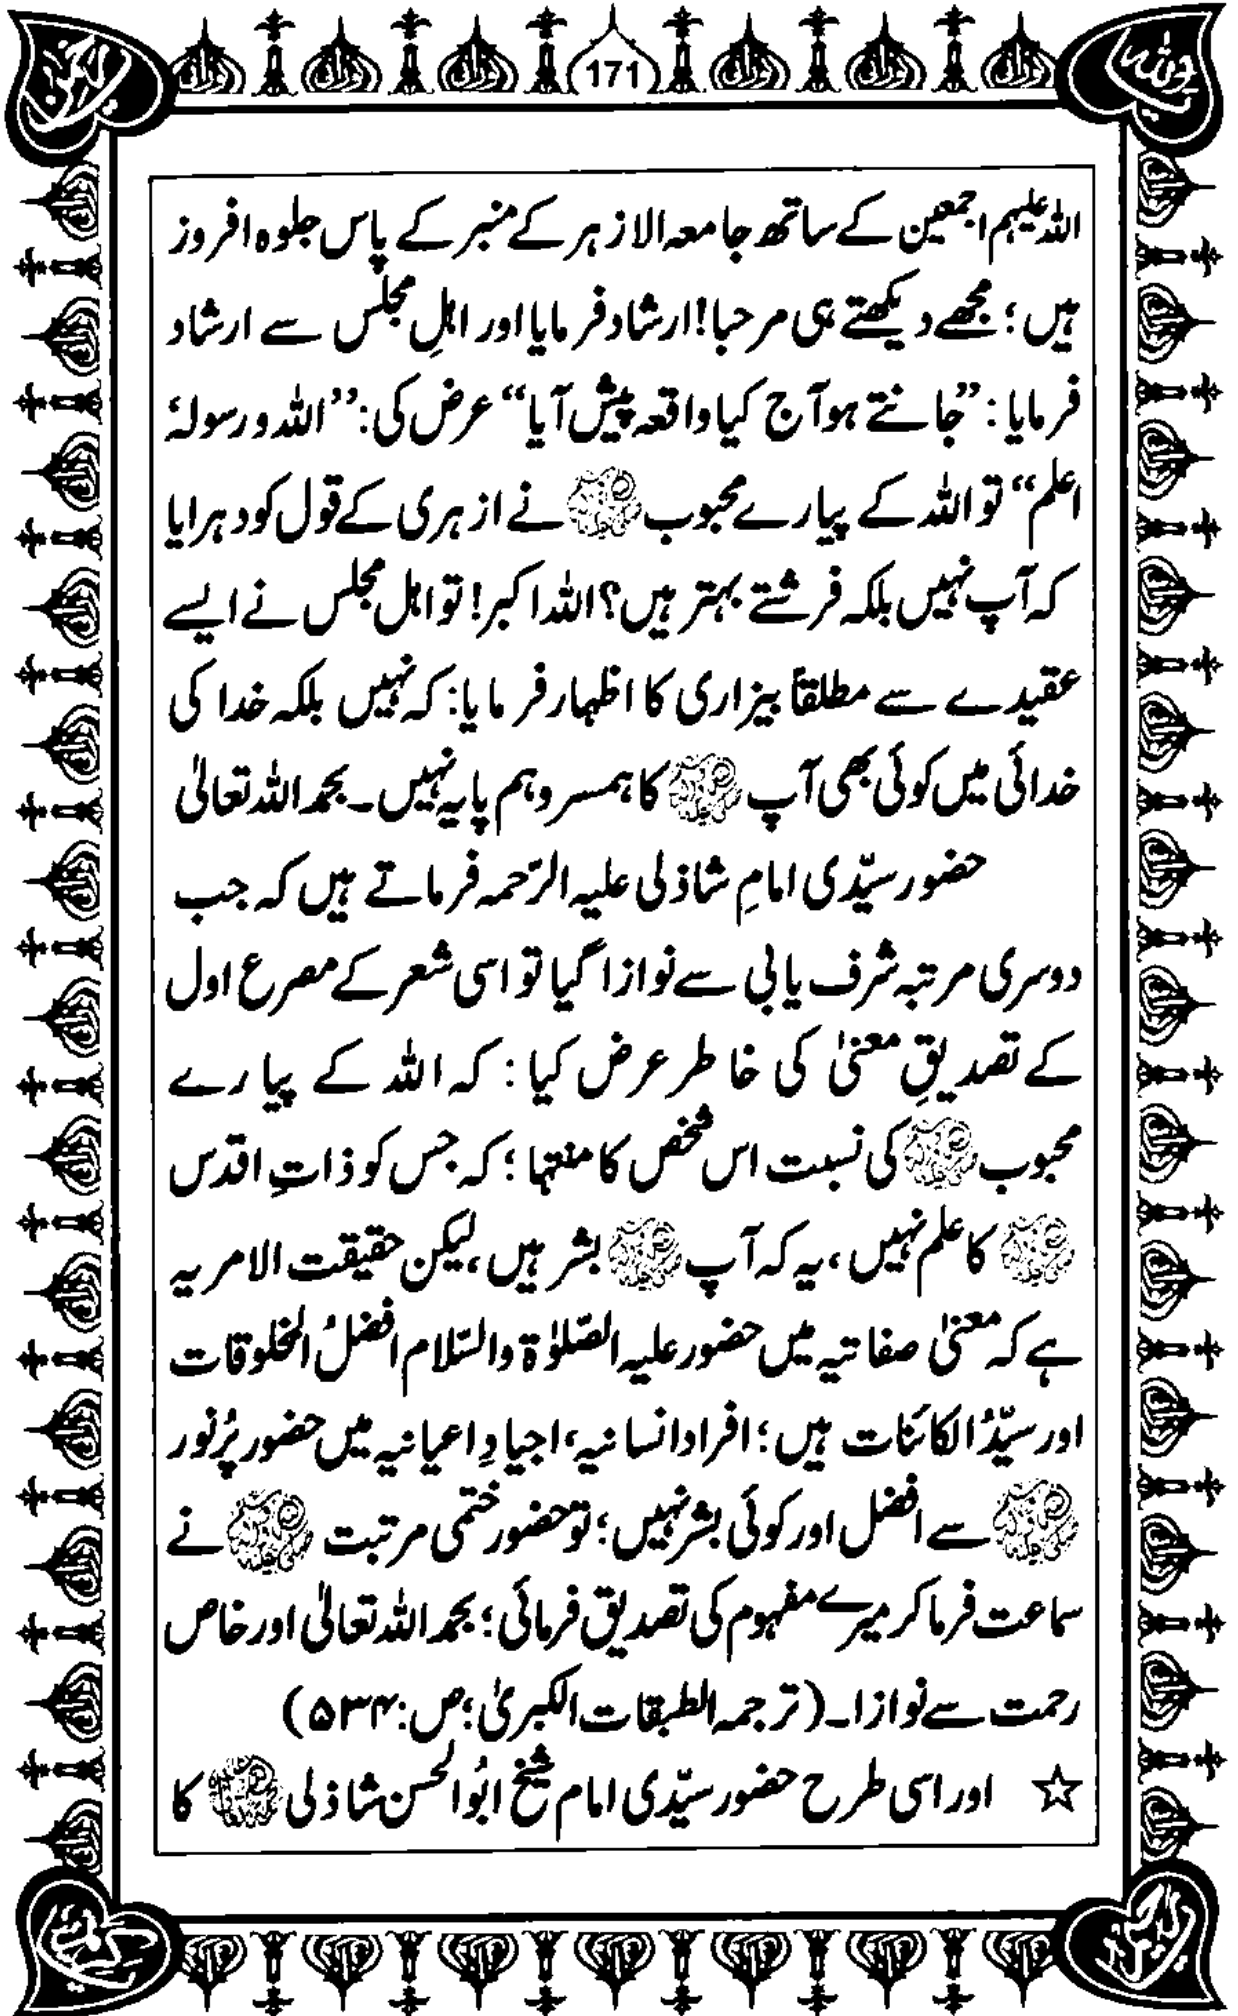 171
اللہ علیہم اجمعین کے ساتھ جامعہ الازہر کے منبر کے پاس جلوہ افروز
ہیں؛ مجھے دیکھتے ہی مرحبا! ارشاد فرمایا اور اہلِ مجلس سے ارشاد
فرمایا: ”جانتے ہو آج کیا واقعہ پیش آیا“ عرض کی: ’’اللہ و رسولہٗ
اعلم“ تو اللہ کے پیارے محبوب ﷺ نے ازہری کے قول کو دہرایا
کہ آپ نہیں بلکہ فرشتے بہتر ہیں؟ اللہ اکبر! تو اہل مجلس نے ایسے
عقیدے سے مطلقاً بیزاری کا اظہار فرمایا: کہ نہیں بلکہ خدا کی
خدائی میں کوئی بھی آپ ﷺ کا ہمسر و ہم پایہ نہیں۔ بحمد اللہ تعالیٰ
حضور سیّدی امامِ شاذلی علیہ الرّحمہ فرماتے ہیں کہ جب
دوسری مرتبہ شرف یابی سے نوازا گیا تو اسی شعر کے مصرع اول
کے تصدیقِ معنیٰ کی خاطر عرض کیا: کہ اللہ کے پیارے
محبوب ﷺ کی نسبت اس شخص کا منتہا؛ کہ جس کو ذاتِ اقدس
ﷺ کا علم نہیں، یہ کہ آپ ﷺ بشر ہیں، لیکن حقیقت الامر یہ
ہے کہ معنیٰ صفاتیہ میں حضور علیہ الصّلوٰۃ والسّلام افضلُ المخلوقات
اور سیّدُ الکائنات ہیں؛ افراد انسانیہ، اجیادِ اعیانیہ میں حضور پُر نور
ﷺ سے افضل اور کوئی بشر نہیں؛ تو حضور ختمی مرتبت ﷺ نے
سماعت فرما کر میرے مفہوم کی تصدیق فرمائی؛ بحمد اللہ تعالیٰ اور خاص
رحمت سے نوازا۔ (ترجمہ الطبقات الکبریٰ؛ ص: ۵۳۴)
☆ اور اسی طرح حضور سیّدی امام شیخ ابُوالحسن شاذلی کا